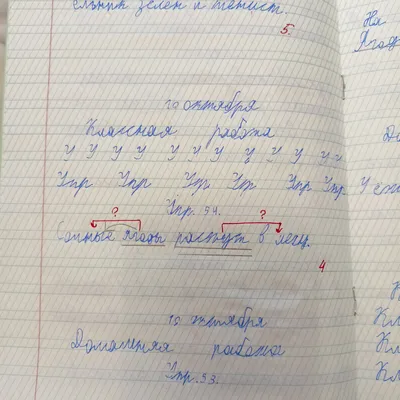 ельник зелен и тенист.
5
10 октября
Классная работа
у у у у у у у у у у у у
Упр Упр Упр Уп Упр Упр
Упр. 54.
? ?
Сочные ягоды растут в лесу.
4
10 октября
Домашняя работа
Упр. 53.
На
Ягод
У
К
Кл
Кл
Кл